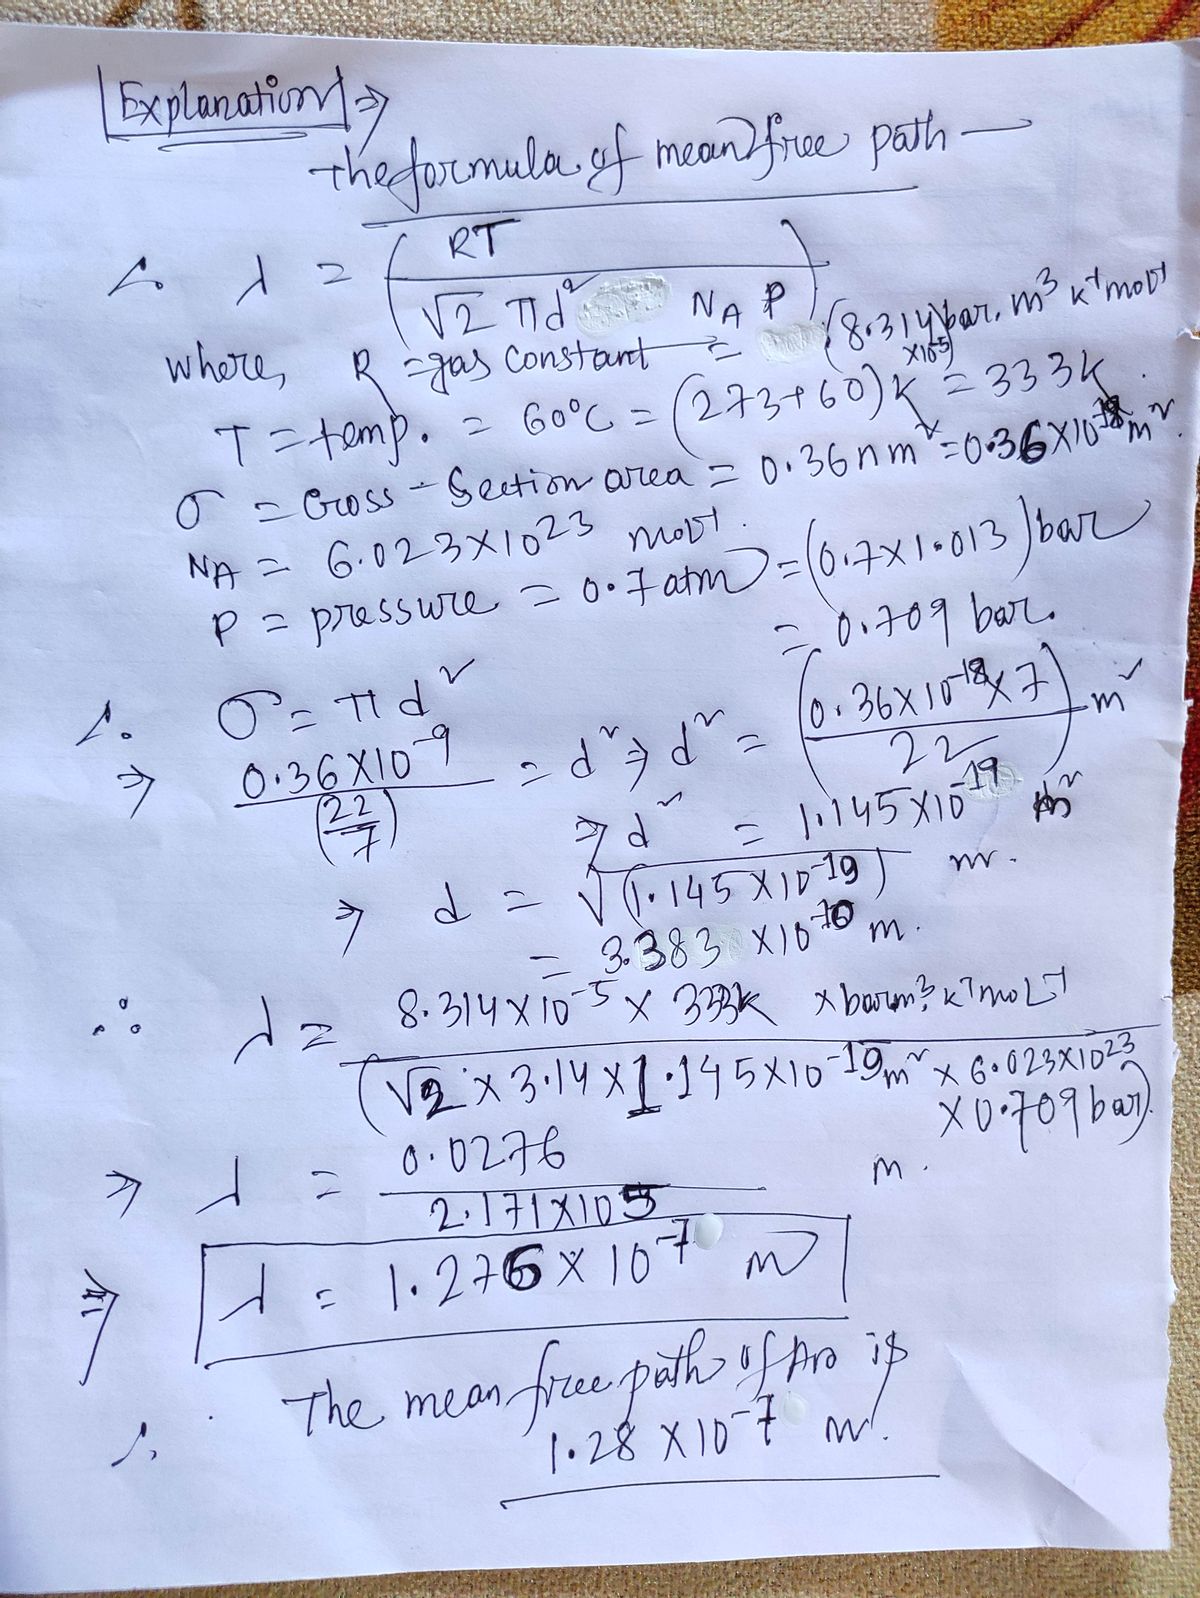 Explanation ⇒
The formula of mean free path —
∴ λ = (RT / √2 πd² N_A P)
where, R = gas constant = (8.314 × 10⁻⁵) bar. m³ K⁻¹ mol⁻¹
T = temp. = 60°C = (273+60) K = 333K.
σ = Cross-Section area = 0.36 nm² = 0.36 × 10⁻¹⁸ m².
N_A = 6.023 × 10²³ mol⁻¹.
P = pressure = 0.7 atm = (0.7 × 1.013) bar
= 0.709 bar.
∴ σ = πd²
⇒ 0.36 × 10⁻⁹ / (22/7) = d² ⇒ d² = (0.36 × 10⁻¹⁸ × 7 / 22) m²
⇒ d² = 1.145 × 10⁻¹⁹ m²
⇒ d = √(1.145 × 10⁻¹⁹) m.
= 3.383 × 10⁻¹⁰ m.
∴ λ = 8.314 × 10⁻⁵ × 333K × bar m³ K⁻¹ mol⁻¹ / (√2 × 3.14 × 1.145 × 10⁻¹⁹ m² × 6.023 × 10²³ × 0.709 bar).
⇒ λ = 0.0276 / 2.171 × 10⁵ m.
⇒ λ = 1.276 × 10⁻⁷ m
∴ The mean free path of Ar is
1.28 × 10⁻⁷ m.